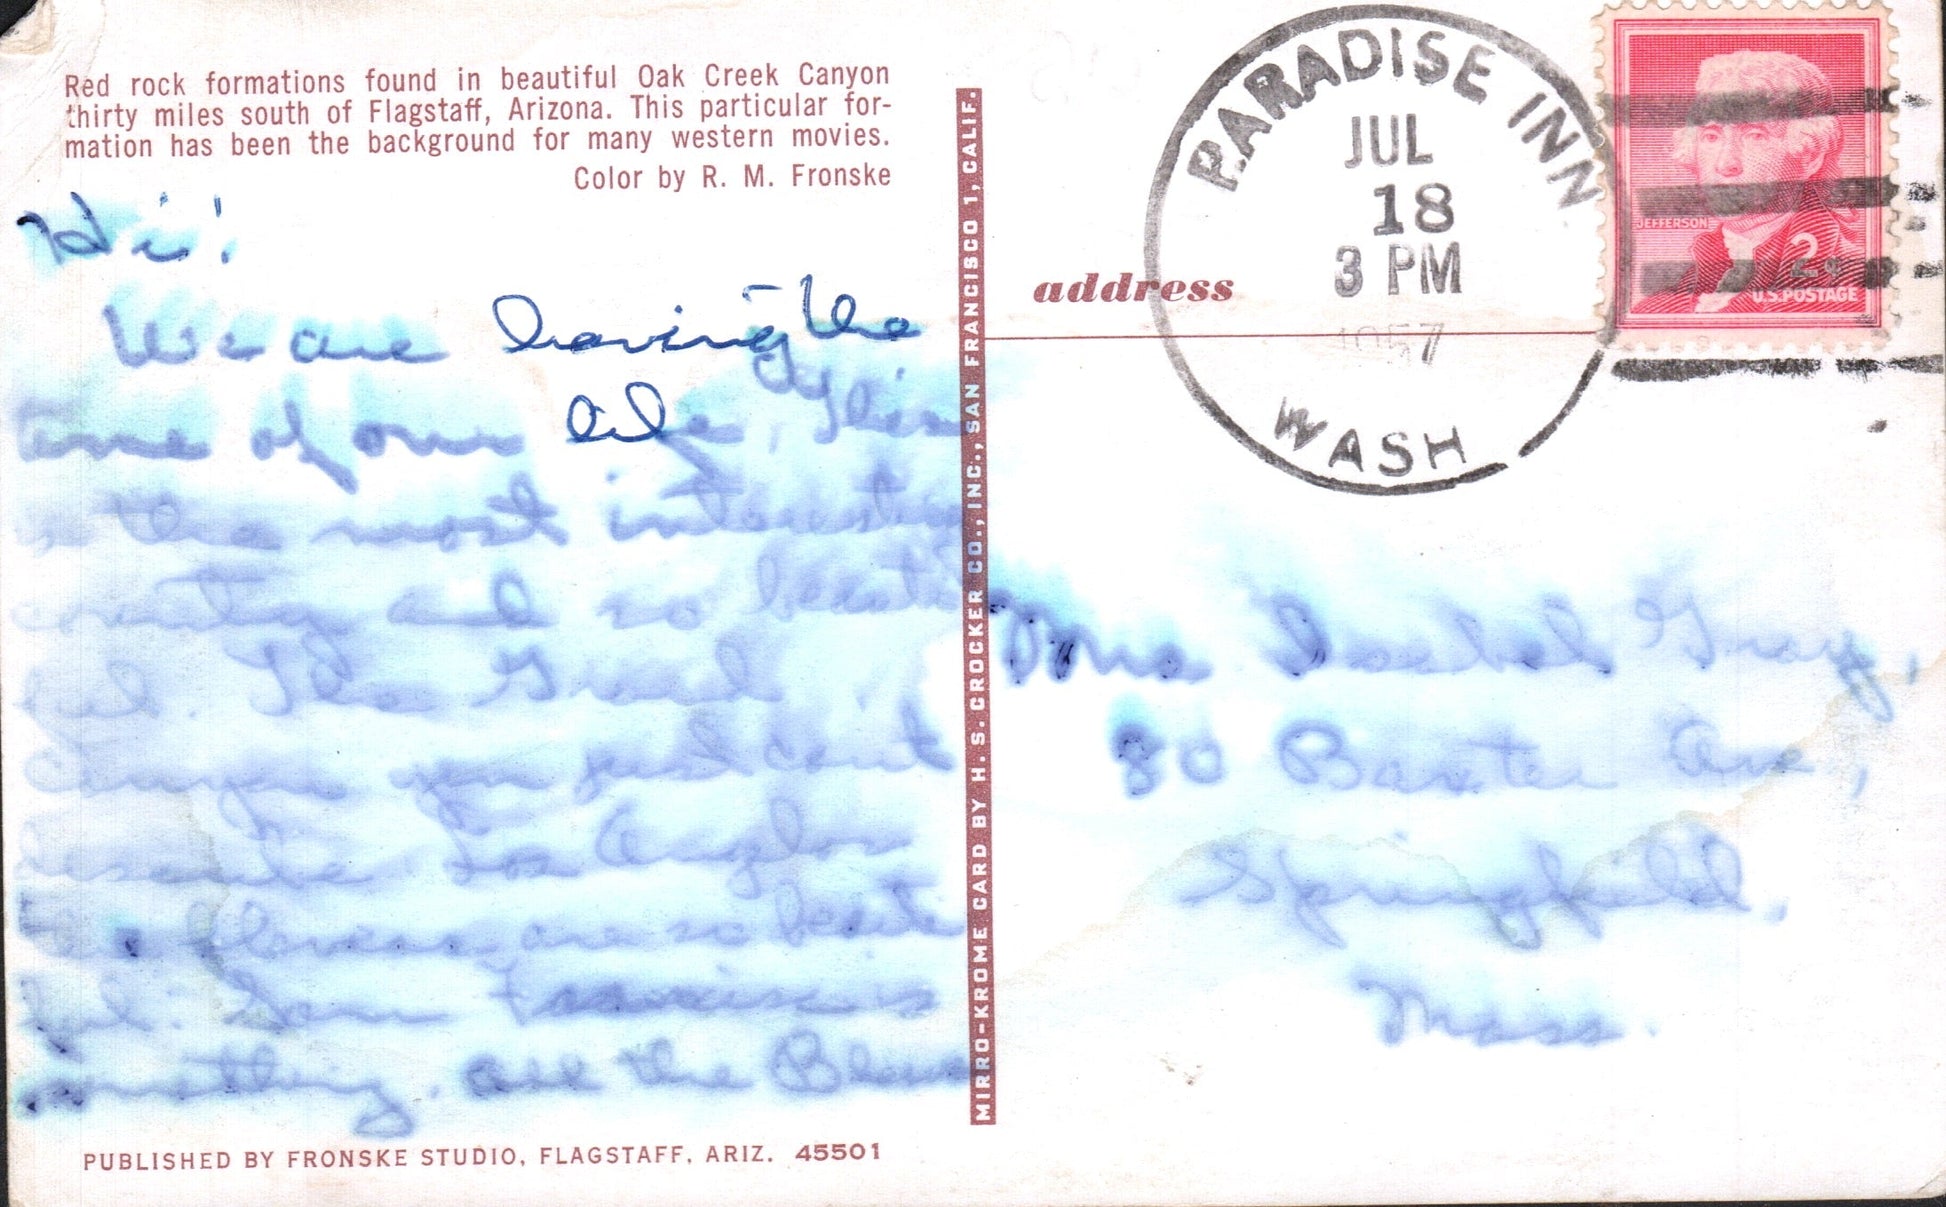 Red rock formations found in beautiful Oak Creek Canyon
thirty miles south of Flagstaff, Arizona. This particular for-
mation has been the background for many western movies.
Color by R. M. Fronske
Hi!
We are having the
time of our life, this
is the most interesting
country and so beauti
ful. The Grand
Canyon you just cant
describe. Los Angelos
flowers are so beauti
ful. San Francisco is
something. all the
PUBLISHED BY FRONSKE STUDIO, FLAGSTAFF, ARIZ. 45501
MIRRO-KROME CARD BY H. S. CROCKER CO., INC., SAN FRANCISCO 1, CALIF.
address
PARADISE INN
JUL
18
3 PM
1957
WASH
JEFFERSON
2¢
U.S. POSTAGE
Mrs Isabel Gray,
80 Baxter Ave,
Springfield,
Mass.